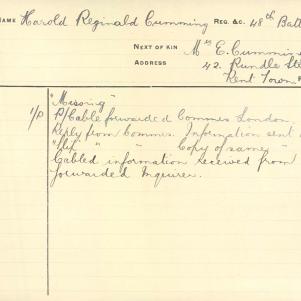 NAME Harold Reginald Cumming REG. &C. 48th Batt
NEXT OF KIN Mrs E. Cumming
ADDRESS 42, Rundle St
Kent Town
"Missing"
1/P P/Cable forwarded Commrs London.
Reply from Commrs. Information sent
" " Copy of same "
Cabled information received from
forwarded Inquirer.